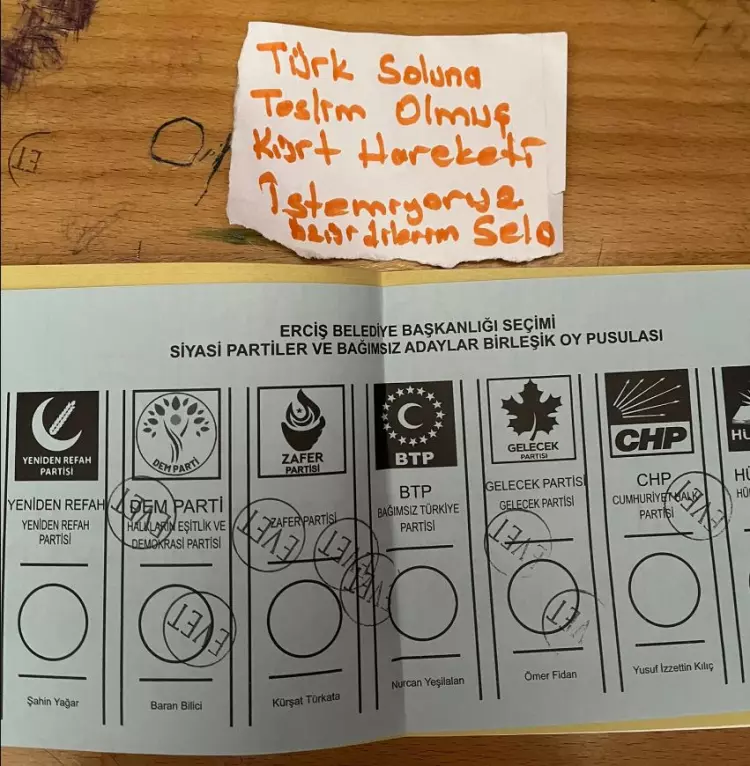 Türk Soluna
Teslim Olmuş
Kürt Hareketi
İstemiyoruz
Selo
ERCİŞ BELEDİYE BAŞKANLIĞI SEÇİMİ
SİYASİ PARTİLER VE BAĞIMSIZ ADAYLAR BİRLEŞİK OY PUSULASI
YENİDEN REFAH
PARTİSİ
YENİDEN REFAH
YENİDEN REFAH
PARTİSİ
Şahin Yağar
DEM PARTİ
DEM PARTİ
HALKLARIN EŞİTLİK VE
DEMOKRASİ PARTİSİ
Baran Bilici
ZAFER
PARTİSİ
ZAFER PARTİSİ
Kürşat Türkata
BTP
BTP
BAĞIMSIZ TÜRKİYE
PARTİSİ
Nurcan Yeşilalan
GELECEK
PARTİSİ
GELECEK PARTİSİ
GELECEK PARTİSİ
Ömer Fidan
CHP
CHP
CUMHURİYET HALK
PARTİSİ
Yusuf İzzettin Kılıç
HÜ
HÜ
HÜ
EVET
EVET
EVET
EVET
EVET
EVET
EVET
ET
ET